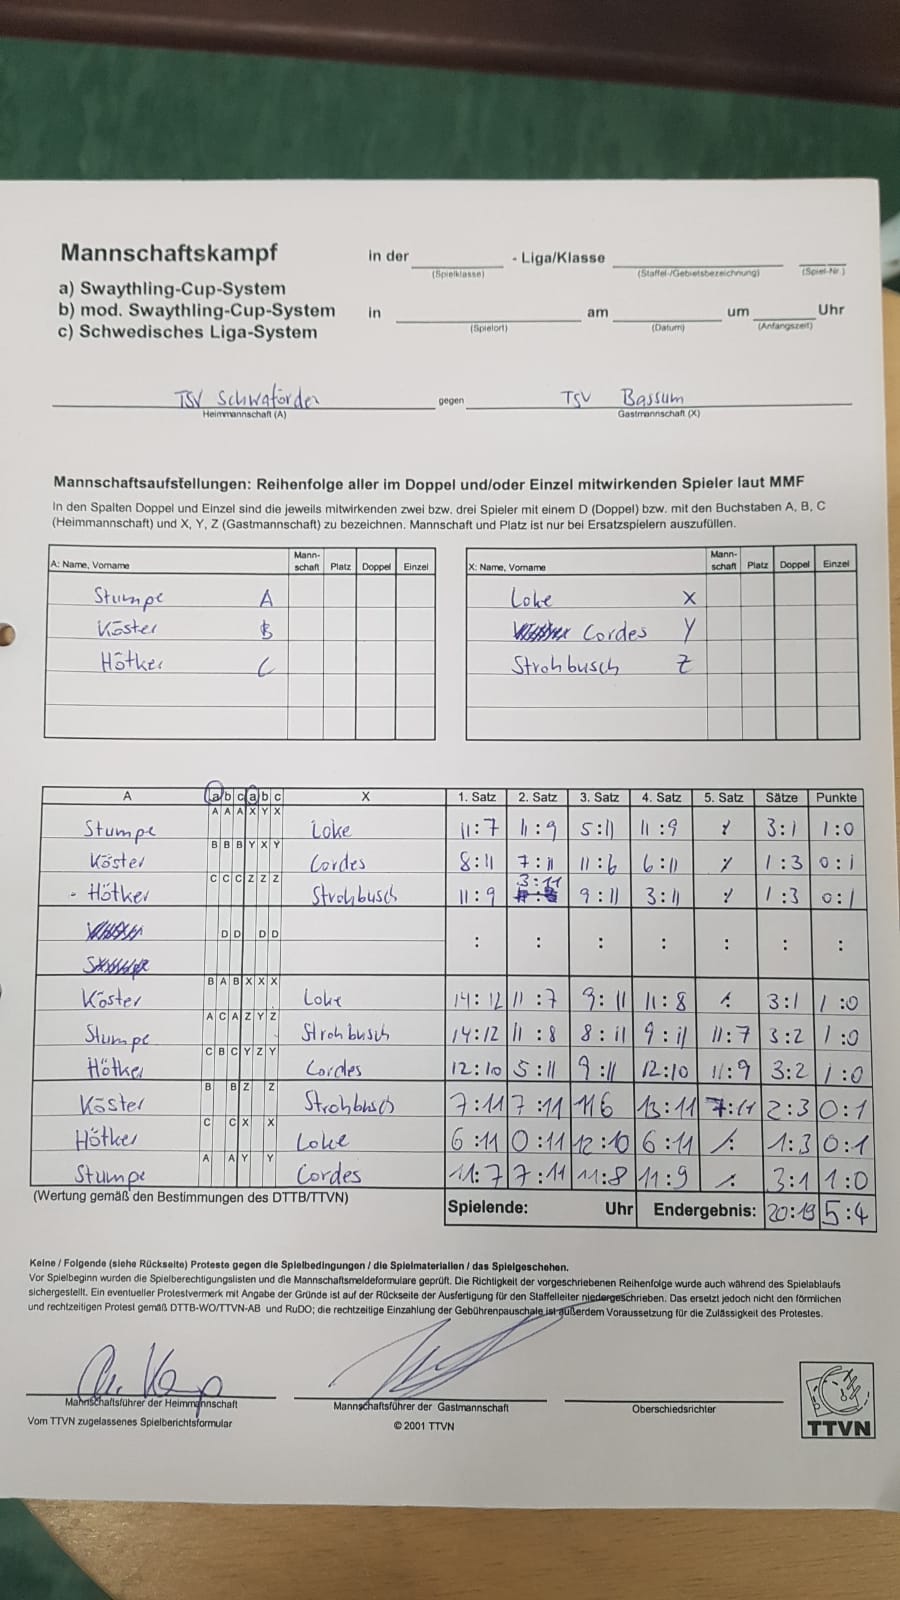 Mannschaftskampf in der - Liga/Klasse
(Spielklasse) (Staffel-/Gebietsbezeichnung) (Spiel-Nr.)
a) Swaythling-Cup-System
b) mod. Swaythling-Cup-System in am um Uhr
(Spielort) (Datum) (Anfangszeit)
c) Schwedisches Liga-System
TSV Schwaförden gegen TSV Bassum
Heimmannschaft (A) Gastmannschaft (X)
Mannschaftsaufstellungen: Reihenfolge aller im Doppel und/oder Einzel mitwirkenden Spieler laut MMF
In den Spalten Doppel und Einzel sind die jeweils mitwirkenden zwei bzw. drei Spieler mit einem D (Doppel) bzw. mit den Buchstaben A, B, C
(Heimmannschaft) und X, Y, Z (Gastmannschaft) zu bezeichnen. Mannschaft und Platz ist nur bei Ersatzspielern auszufüllen.
A: Name, Vorname Mann-schaft Platz Doppel Einzel X: Name, Vorname Mann-schaft Platz Doppel Einzel
Stumpe A Loke X
Köster B Cordes Y
Hötker C Strohbusch Z
A a b c a b c X 1. Satz 2. Satz 3. Satz 4. Satz 5. Satz Sätze Punkte
A A A X Y X
Stumpe Loke 11:7 11:9 5:11 11:9 ⁒ 3:1 1:0
B B B Y X Y
Köster Cordes 8:11 7:11 11:6 6:11 ⁒ 1:3 0:1
C C C Z Z Z
- Hötker Strohbusch 11:9 3:11 9:11 3:11 ⁒ 1:3 0:1
D D D D : : : : : : :
B A B X X X
Köster Loke 14:12 11:7 9:11 11:8 ⁒ 3:1 1:0
A C A Z Y Z
Stumpe Strohbusch 14:12 11:8 8:11 9:11 11:7 3:2 1:0
C B C Y Z Y
Hötker Cordes 12:10 5:11 9:11 12:10 11:9 3:2 1:0
B B Z Z
Köster Strohbusch 7:11 7:11 11:6 13:11 7:11 2:3 0:1
C C X X
Hötker Loke 6:11 0:11 12:10 6:11 ⁒ 1:3 0:1
A A Y Y
Stumpe Cordes 11:7 7:11 11:8 11:9 ⁒ 3:1 1:0
(Wertung gemäß den Bestimmungen des DTTB/TTVN) Spielende: Uhr Endergebnis: 20:19 5:4
Keine / Folgende (siehe Rückseite) Proteste gegen die Spielbedingungen / die Spielmaterialien / das Spielgeschehen.
Vor Spielbeginn wurden die Spielberechtigungslisten und die Mannschaftsmeldeformulare geprüft. Die Richtigkeit der vorgeschriebenen Reihenfolge wurde auch während des Spielablaufs
sichergestellt. Ein eventueller Protestvermerk mit Angabe der Gründe ist auf der Rückseite der Ausfertigung für den Staffelleiter niedergeschrieben. Das ersetzt jedoch nicht den förmlichen
und rechtzeitigen Protest gemäß DTTB-WO/TTVN-AB und RuDO; die rechtzeitige Einzahlung der Gebührenpauschale ist außerdem Voraussetzung für die Zulässigkeit des Protestes.
Mannschaftsführer der Heimmannschaft Mannschaftsführer der Gastmannschaft Oberschiedsrichter
Vom TTVN zugelassenes Spielberichtsformular © 2001 TTVN TTVN